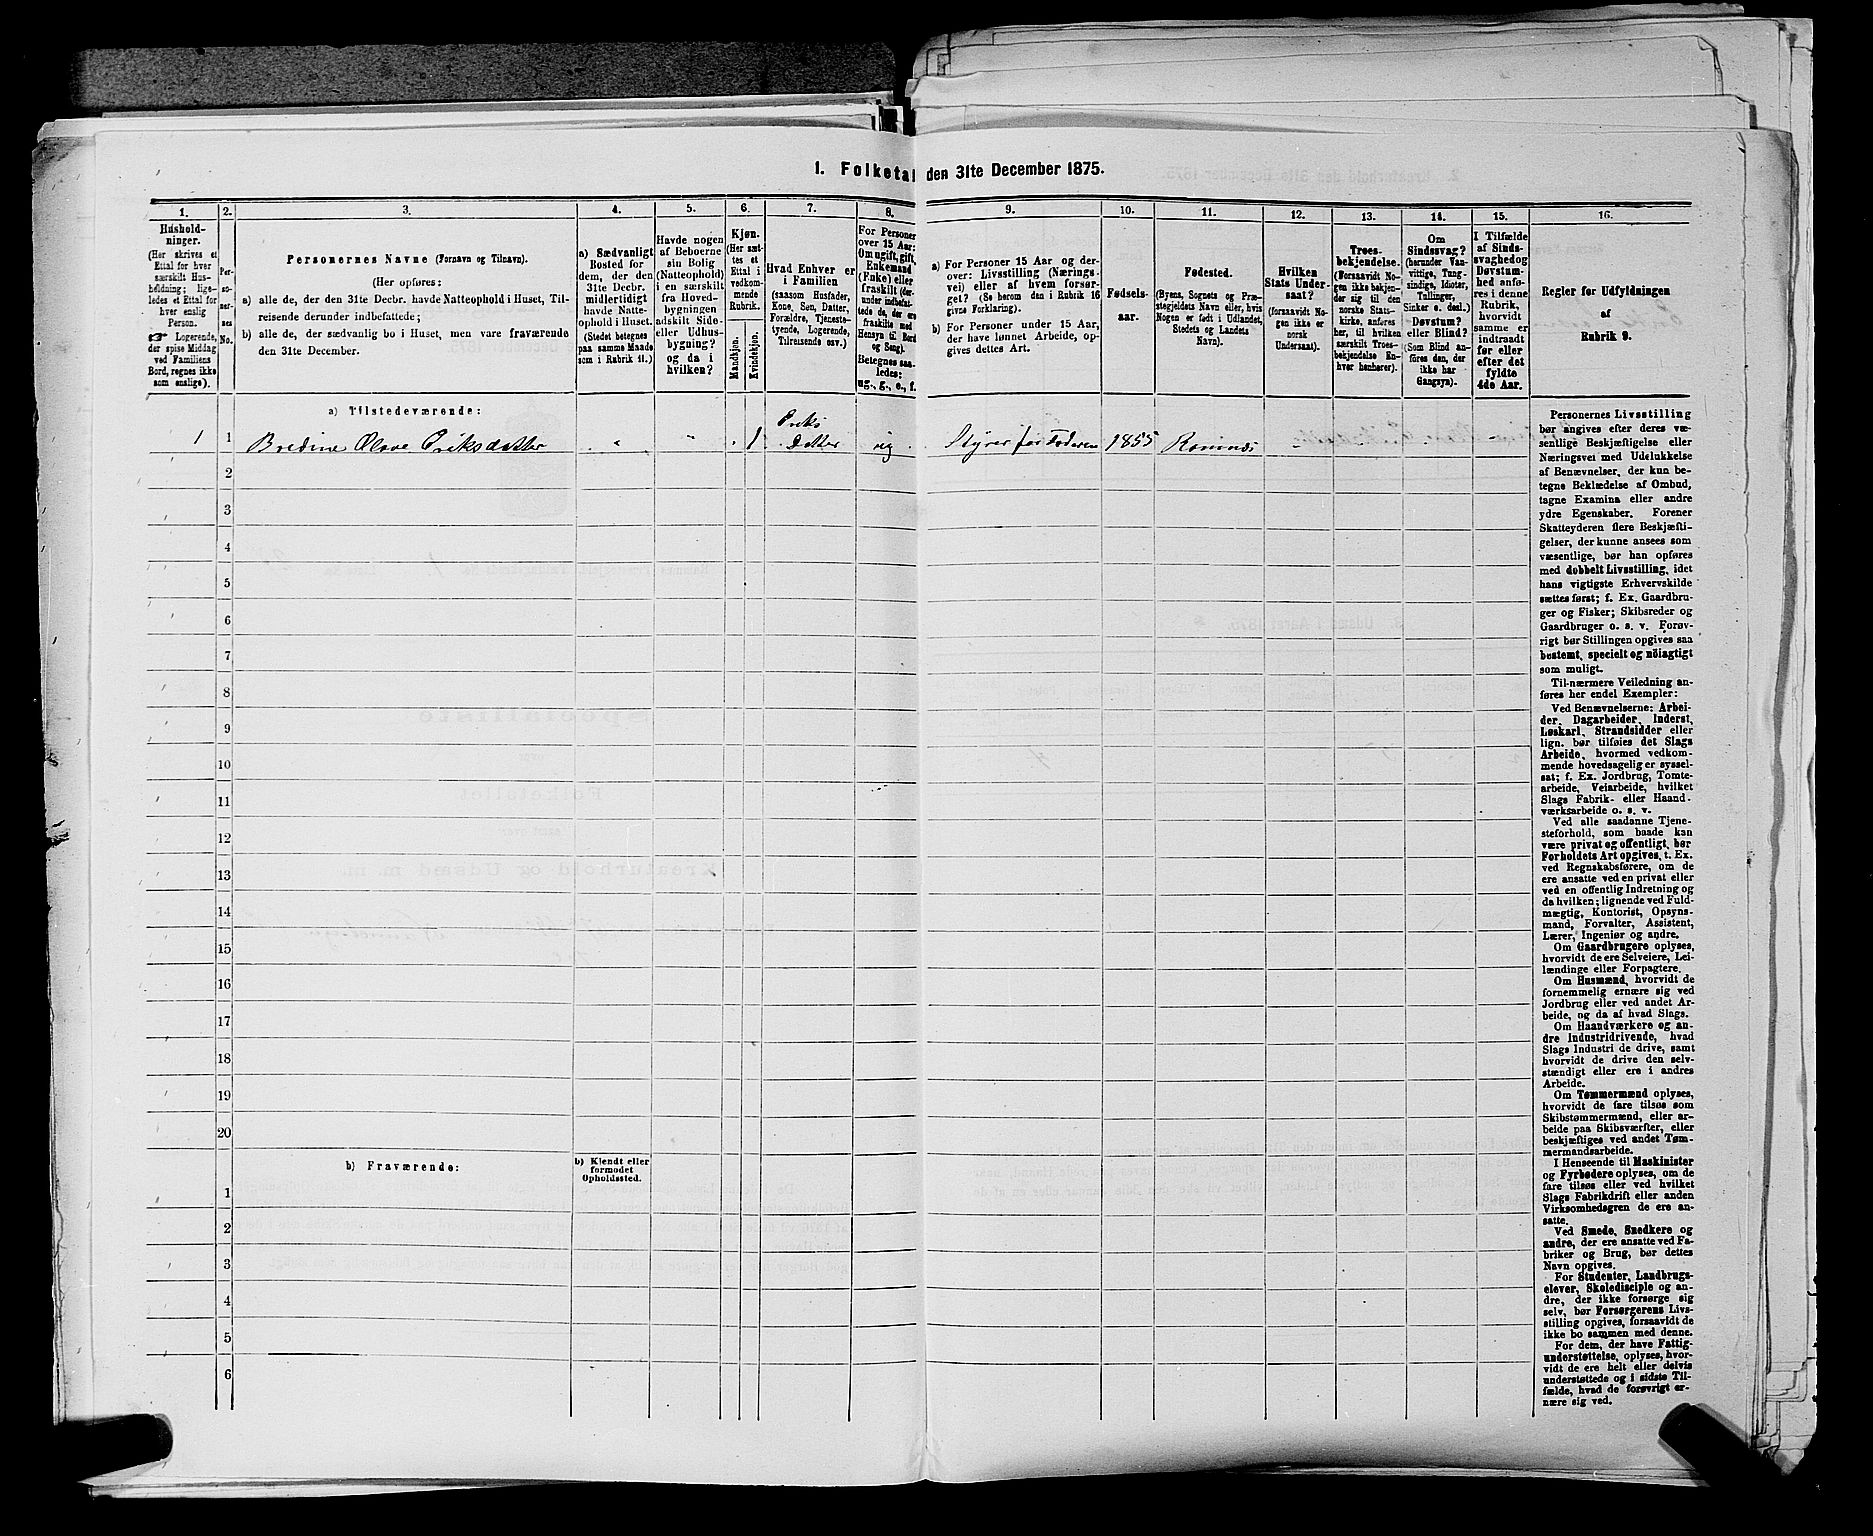 1. Folketal den 31te December 1875.
1. 2. 3. 4. 5. 6. 7. 8. 9. 10. 11. 12. 13. 14. 15. 16.
Hushold-
ninger.
(Her skrives et
Ettal for hver
særskilt Hus-
holdning; lige-
ledes et Ettal for
hver enslig
Person.
☞ Logerende,
der spise Middag
ved Familiens
Bord, regnes ikke
som enslige).
Per-
so-
ner-
nes
No.
Personernes Navne (Fornavn og Tilnavn).
(Her opføres:
a) alle de, der den 31te Decbr. havde Natteophold i Huset, Til-
reisende derunder indbefattede;
b) alle de, der sædvanlig bo i Huset, men vare fraværende
den 31te December.
a) Sædvanligt
Bosted for
dem, der den
31te Decbr.
midlertidigt
havde Natte-
ophold i Huset.
(Stedet betegnes
paa samme Maade
som i Rubrik 11.)
Havde nogen
af Beboerne
sin Bolig
(Natteophold)
i en særskilt
fra Hoved-
bygningen
adskilt Side-
eller Udhus-
bygning?
og da i
hvilken?
Kjøn.
(Her sæt-
tes et
Ettal i
vedkom-
mende
Rubrik.
Mandkjøn.
Kvindekjøn.
Hvad Enhver er
i Familien
(saasom Husfader,
Kone, Søn, Datter,
Forældre, Tjeneste-
tyende, Logerende,
Tilreisende osv.)
For Personer
over 15 Aar:
Om ugift, gift,
Enkemand
(Enke) eller
fraskilt (der-
under indbefat-
tede de, der ere
fraskilte med
Hensyn til Bord
og Seng).
Betegnes saa-
ledes:
ug., g., e., f.
a) For Personer 15 Aar og der-
over: Livsstilling (Nærings-
vei) eller af hvem forsør-
get? (Se herom den i Rubrik 16
givne Forklaring).
b) For Personer under 15 Aar,
der have lønnet Arbeide, op-
gives dettes Art.
Fødsels-
aar.
Fødested.
(Byens, Sognets og Præ-
stegjeldets Navn eller, hvis
Nogen er født i Udlandet,
Stedets og Landets
Navn).
Hvilken
Stats Under-
saat?
(forsaavidt No-
gen ikke er
norsk
Undersaat).
Troes-
bekjendelse.
(Forsaavidt No-
gen ikke bekjen-
der sig til den
norske Stats-
kirke, anføres
her, til hvilken
særskilt Troes-
bekjendelse En-
hver henhører).
Om
Sindssvag?
(herunder Van-
vittige, Tung-
sindige, Idioter,
Tullinger,
Sinker o. desl.)
Døvstum?
eller Blind?
(Som Blind an-
føres den, der
ikke har
Gangsyn).
I Tilfælde
af Sinds-
svaghed og
Døvstum-
hed anfø-
res i denne
Rubrik,
hvorvidt
samme er
indtraadt
før eller
efter det
fyldte
4de Aar.
Regler for Udfyldningen
af
Rubrik 9.
a) Tilstedeværende:
1 1 Bredine Olave Eriksdatter " " 1 Eriks
Datter ug Styrer for Faderen 1855 Ramnes
2
3
4
5
6
7
8
9
10
11
12
13
14
15
16
17
18
19
20
b) Fraværende: b) Kjendt eller
formodet
Opholdssted.
1
2
3
4
5
6
Personernes Livsstilling
bør angives efter deres væ-
sentlige Beskjæftigelse eller
Næringsvei med Udelukkelse
af Benævnelser, der kun be-
tegne Beklædelse af Ombud,
tagne Examina eller andre
ydre Egenskaber. Forener
Skatteyderen flere Beskjæfti-
gelser, der kunne ansees som
væsentlige, bør han opføres
med dobbelt Livsstilling, idet
hans vigtigste Erhvervskilde
sættes først; f. Ex. Gaardbru-
ger og Fisker; Skibsreder og
Gaardbruger o. s. v. Forøv-
rigt bør Stillingen opgives saa
bestemt, specielt og nöiagtigt
som muligt.
Til nærmere Veiledning an-
føres her endel Exempler:
Ved Benævnelserne: Arbei-
der, Dagarbeider, Inderst,
Løskarl, Strandsidder eller
lign. bør tilføies det Slags
Arbeide, hvormed vedkom-
mende hovedsagelig er syssel-
sat; f. Ex. Jordbrug, Tomte-
arbeide, Veiarbeide, hvilket
Slags Fabrik- eller Haand-
værksarbeide o. s. v.
Ved alle saadanne Tjene-
steforhold, som baade kan
være privat og offentligt, bør
Forholdets Art opgives, t. Ex.
ved Regnskabsførere, om de
ere ansatte ved en privat eller
ved en offentlig Indretning og
da hvilken; lignende ved Fuld-
mægtig, Kontorist, Opsyns-
mand, Forvalter, Assistent,
Lærer, Ingeniør og andre.
Om Gaardbrugere oplyses,
hvorvidt de ere Selveiere, Lei-
lændinge eller Forpagtere.
Om Husmænd, hvorvidt de
fornemmelig ernære sig ved
Jordbrug eller ved andet Ar-
beide, og da af hvad Slags.
Om Haandværkere og an-
dre Industridrivende, hvad
Slags Industri de drive, samt
hvorvidt de drive den selv-
stændigt eller ere i andres
Arbeide.
Om Tømmermænd oplyses,
hvorvidt de fare tilsøs som
Skibstømmermænd, eller ar-
beide paa Skibsværfter, eller
beskjæftiges ved andet Tøm-
mermandsarbeide.
I Henseende til Maskinister
og Fyrbødere oplyses, om de
fare tilsøs eller ved hvilket
Slags Fabrikdrift eller anden
Virksomhedsgren de ere an-
satte.
Ved Smede, Snedkere og
andre, der ere ansatte ved Fa-
briker og Brug, bør dettes
Navn opgives.
For Studenter, Landbrugs-
elever, Skoledisciple og an-
dre, der ikke forsørge sig
selv, bør Forsørgerens Livs-
stilling opgives, forsaavidt de
ikke bo sammen med denne.
For dem, der have Fattig-
understøttelse, oplyses, hvor-
vidt de ere helt eller delvis
understøttede og i sidste Til-
fælde, hvad de forøvrigt er-
nære sig ved.